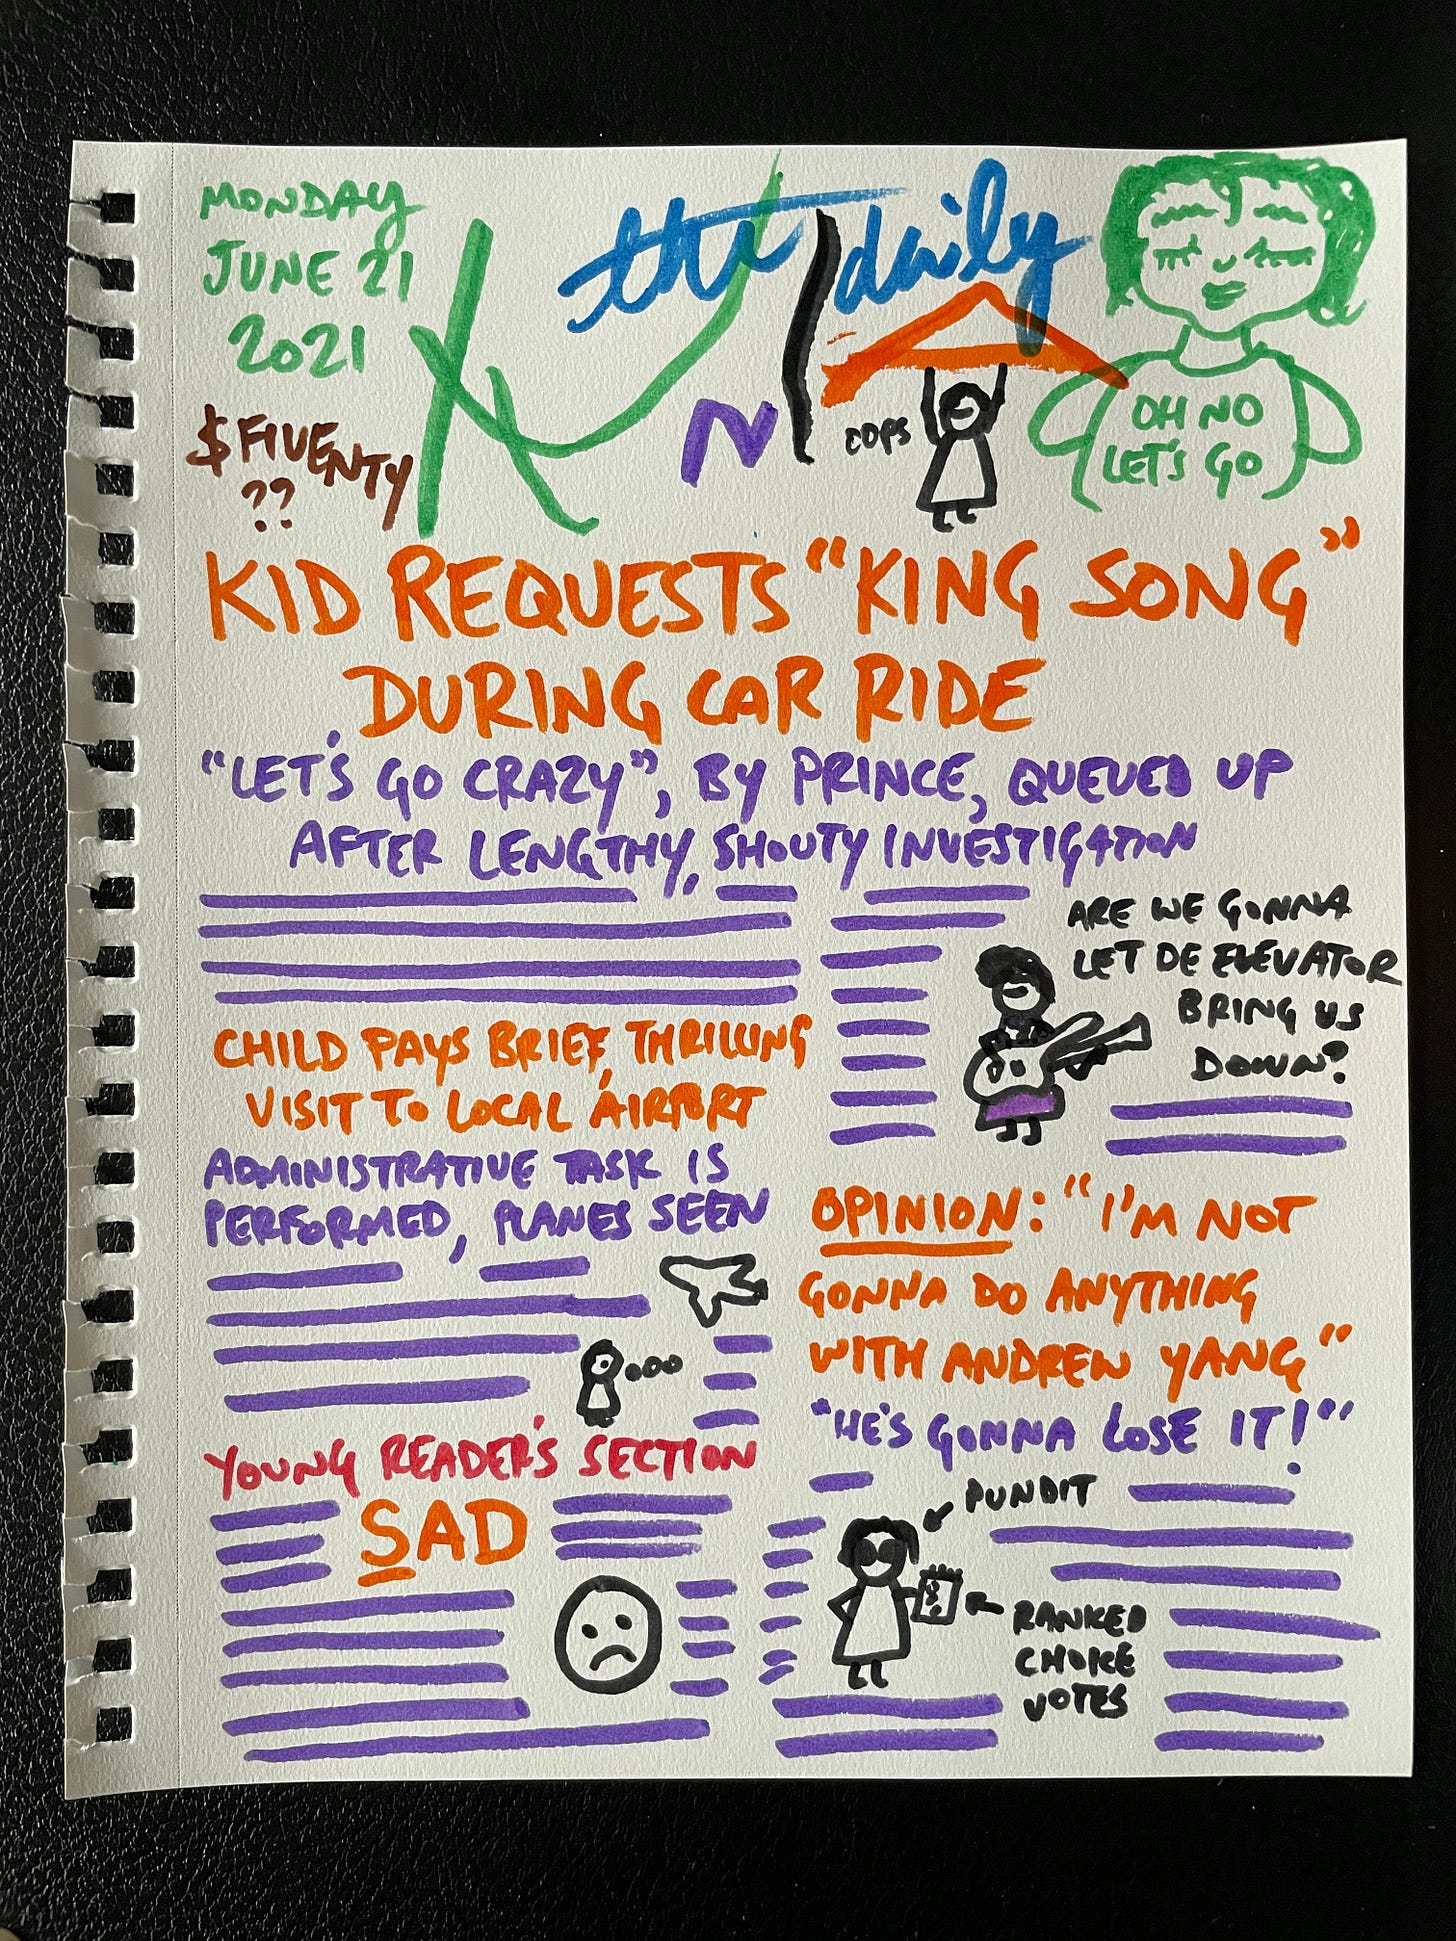 MONDAY
JUNE 21
2021
$FIVENTY
??
the daily
K
N
OOPS
OH NO
LET'S GO
KID REQUESTS "KING SONG"
DURING CAR RIDE
"LET'S GO CRAZY", BY PRINCE, QUEUED UP
AFTER LENGTHY, SHOUTY INVESTIGATION
ARE WE GONNA
LET DE ELEVATOR
BRING US
DOWN?
CHILD PAYS BRIEF, THRILLING
VISIT TO LOCAL AIRPORT
ADMINISTRATIVE TASK IS
PERFORMED, PLANES SEEN
OPINION: "I'M NOT
GONNA DO ANYTHING
WITH ANDREW YANG"
"HE'S GONNA LOSE IT!"
PUNDIT
RANKED
CHOICE
VOTES
YOUNG READER'S SECTION
SAD